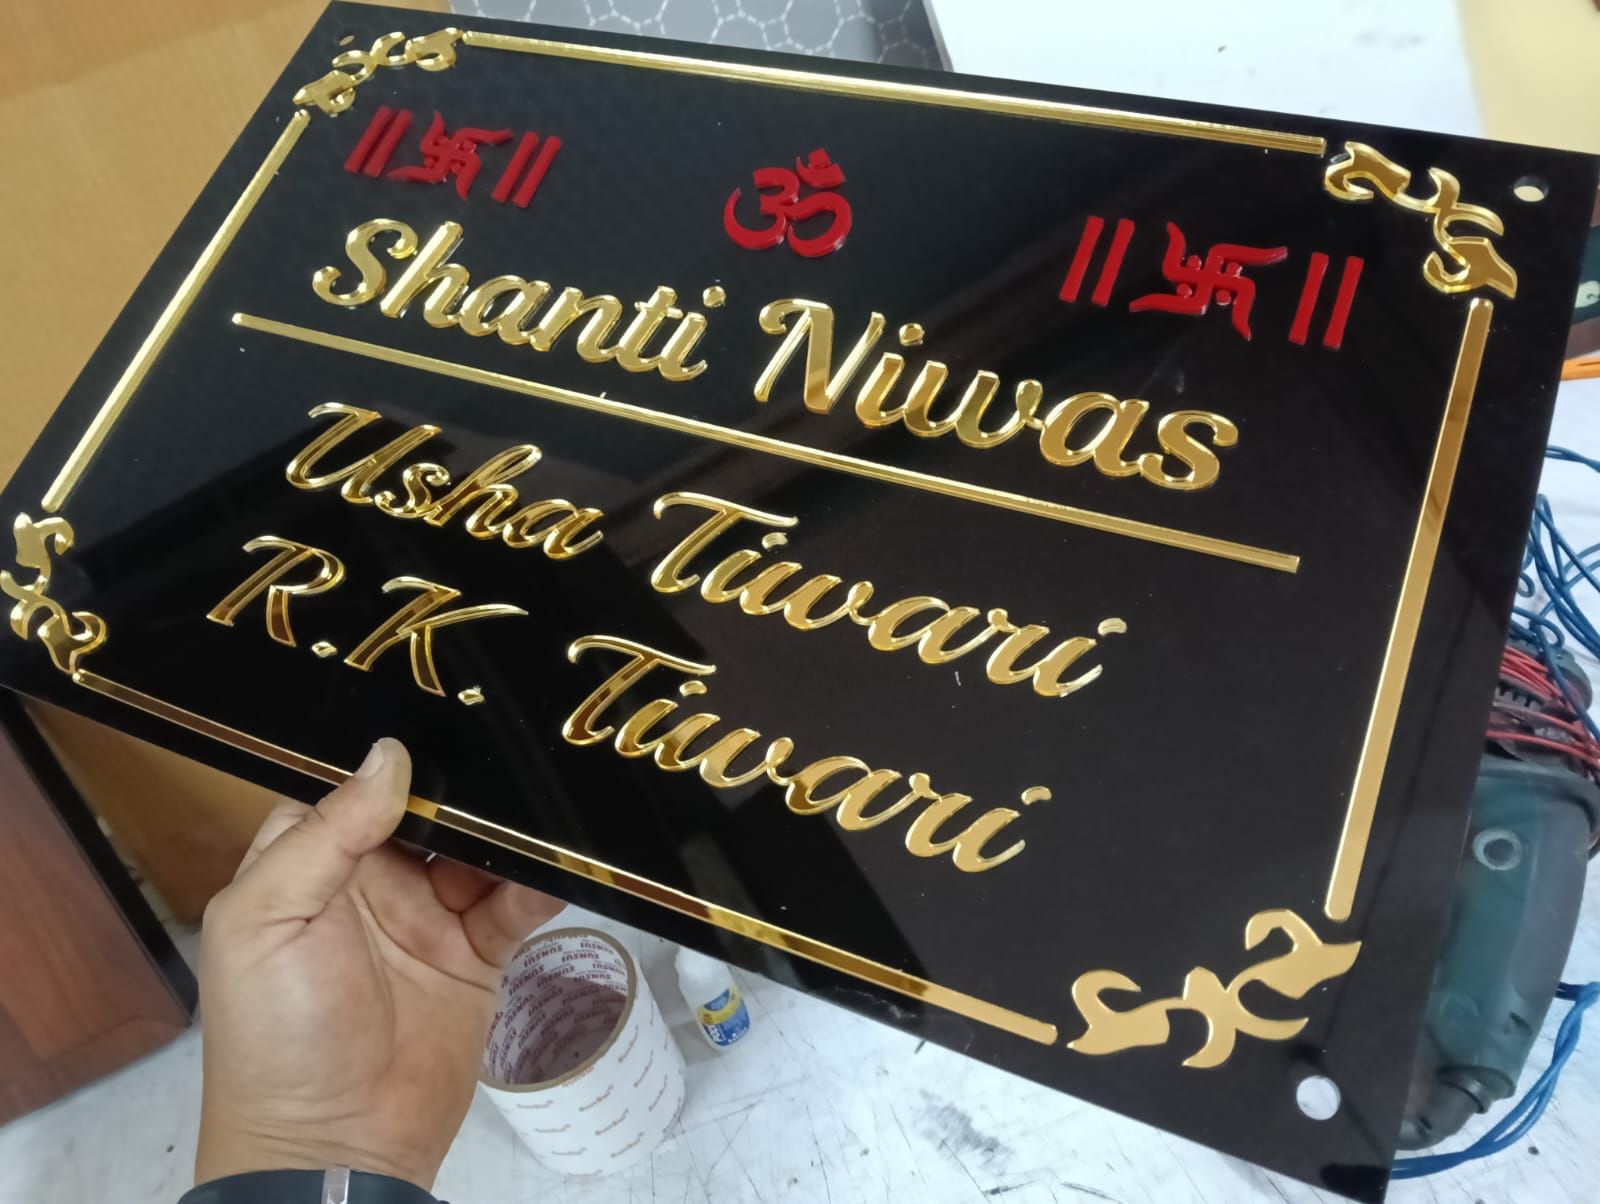 ॥卐॥ ॐ ॥卐॥
Shanti Niwas
Usha Tiwari
R.K. Tiwari
SUNSUI
SunSui